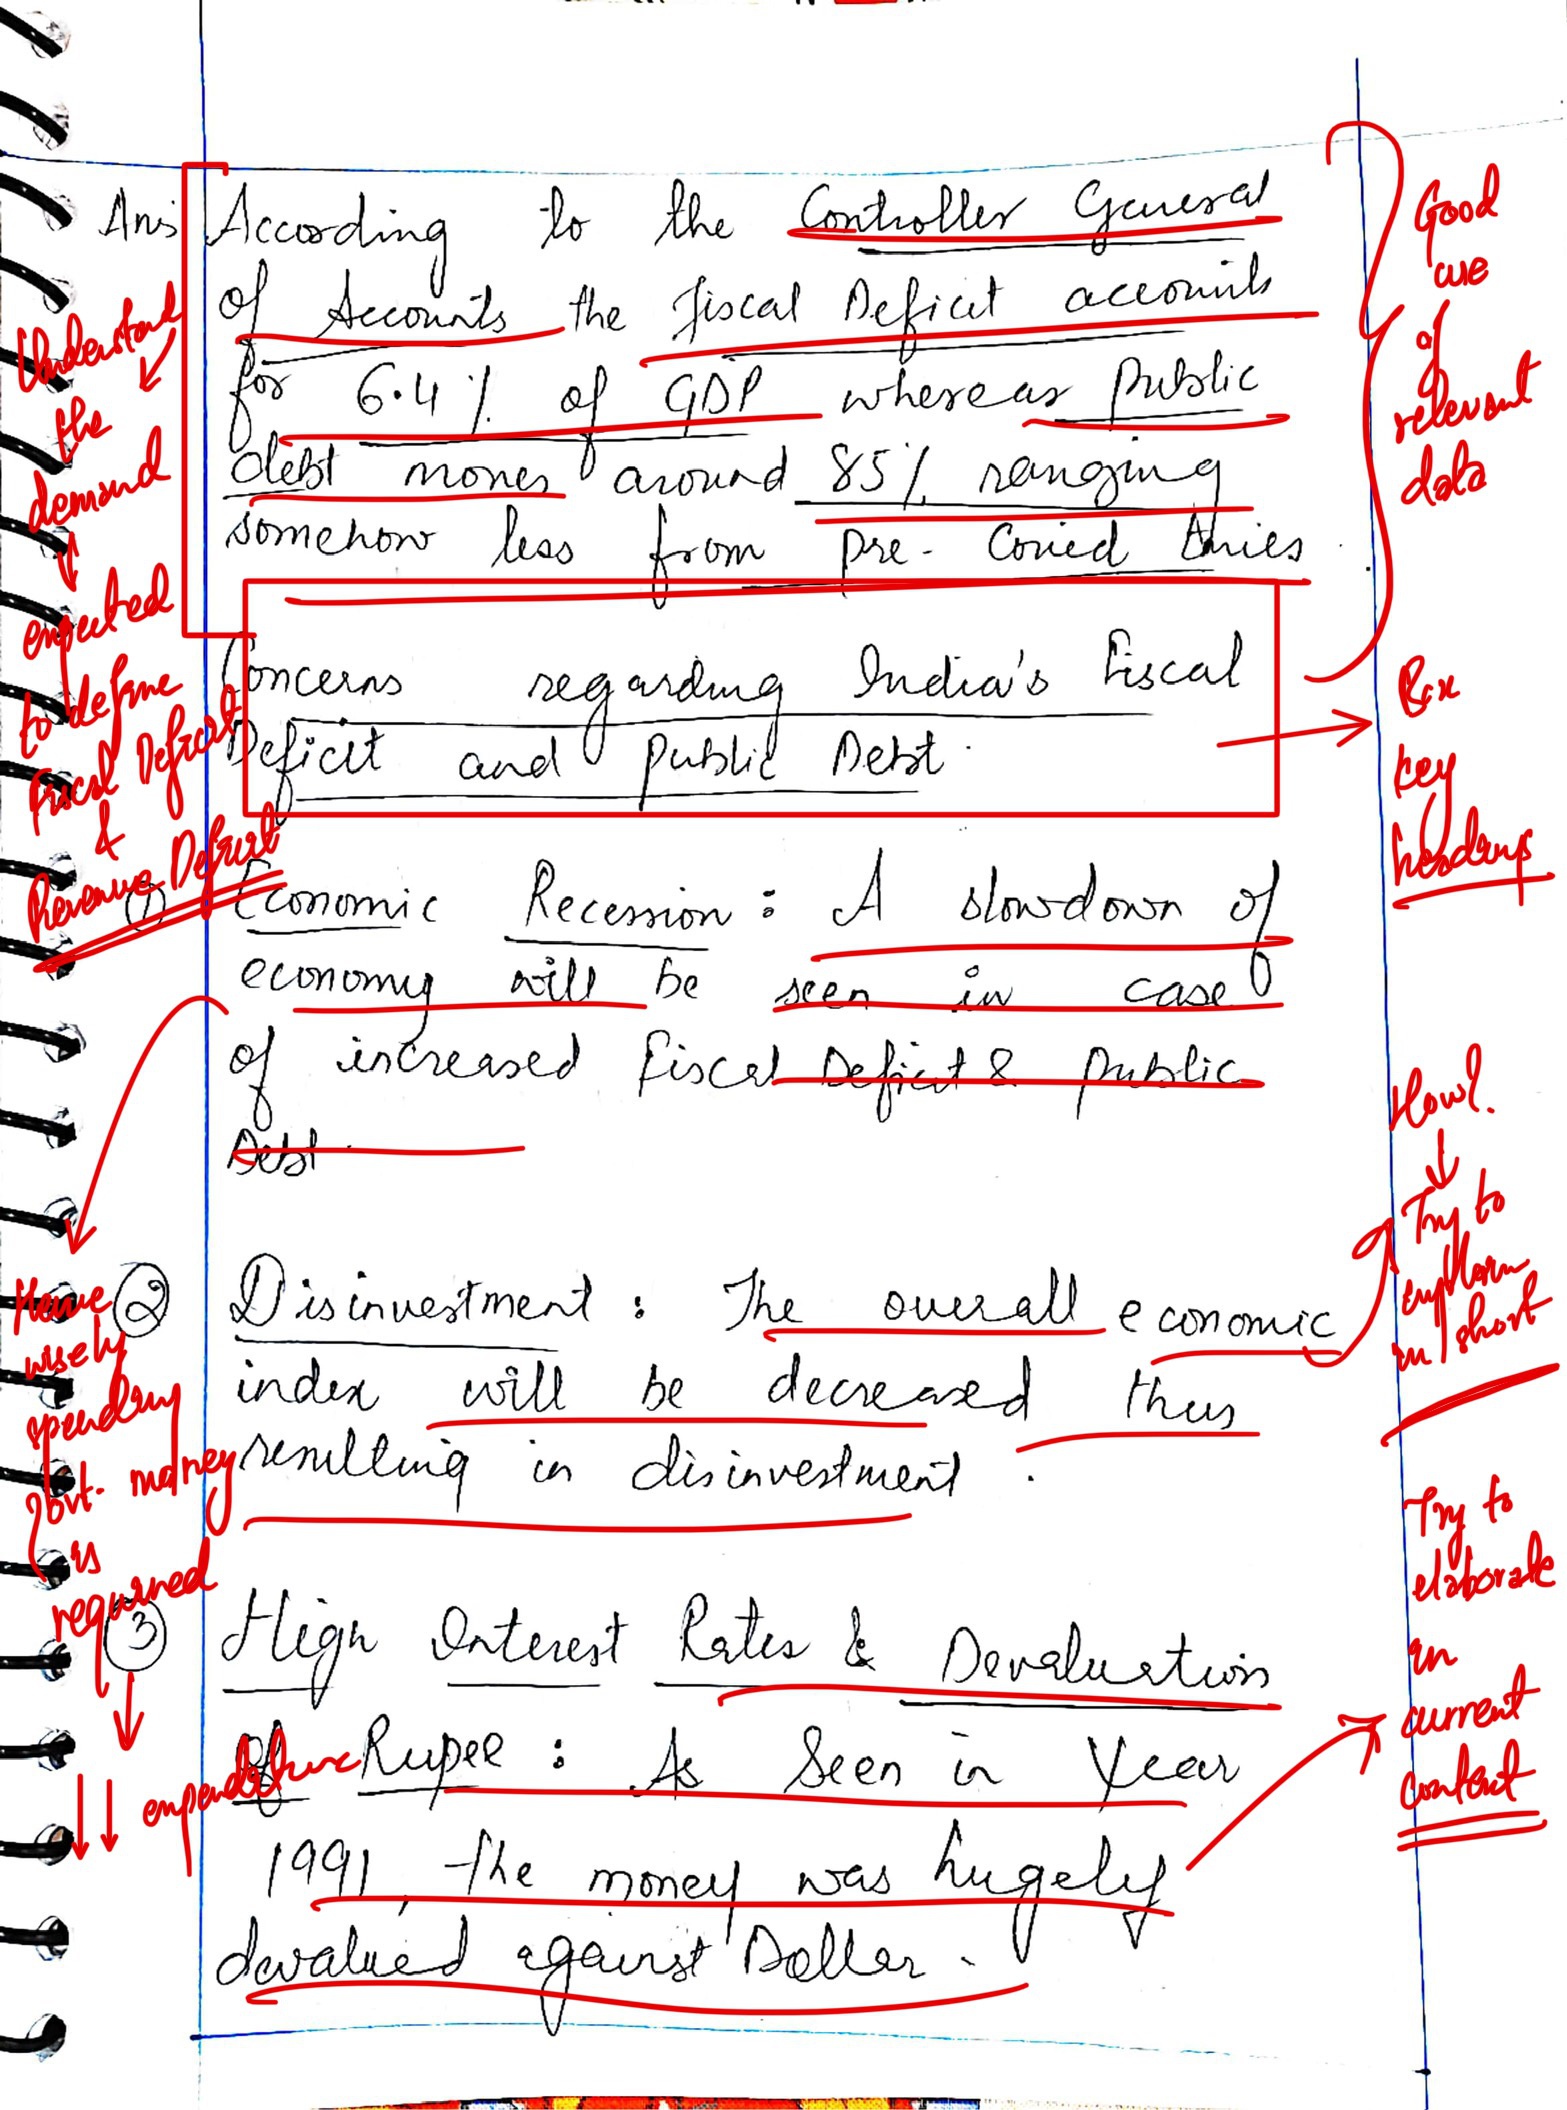 Ans According to the Controller General
of Accounts the fiscal Deficit accounts
for 6.4% of GDP whereas public
debt moves around 85% ranging
somehow less from pre-Covied times
Concerns regarding India's Fiscal
Deficit and Public Debt.
① Economic Recession: A slowdown of
economy will be seen in case
of increased fiscal Deficit & public
Debt
② Disinvestment: The overall economic
index will be decreased thus
resulting in disinvestment.
③ High Interest Rates & Devaluation
of Rupee: As Seen in Year
1991, the money was hugely
devalued against Doller.
Understand
the
demand
expected
to define
Fiscal Deficit
&
Revenue Deficit
Hence
wisely
spending
Govt. money
is
required
expenditure
Good
use
of
relevant
data
Box
key
headings
How?
Try to
explain
in short
Try to
elaborate
in
current
context